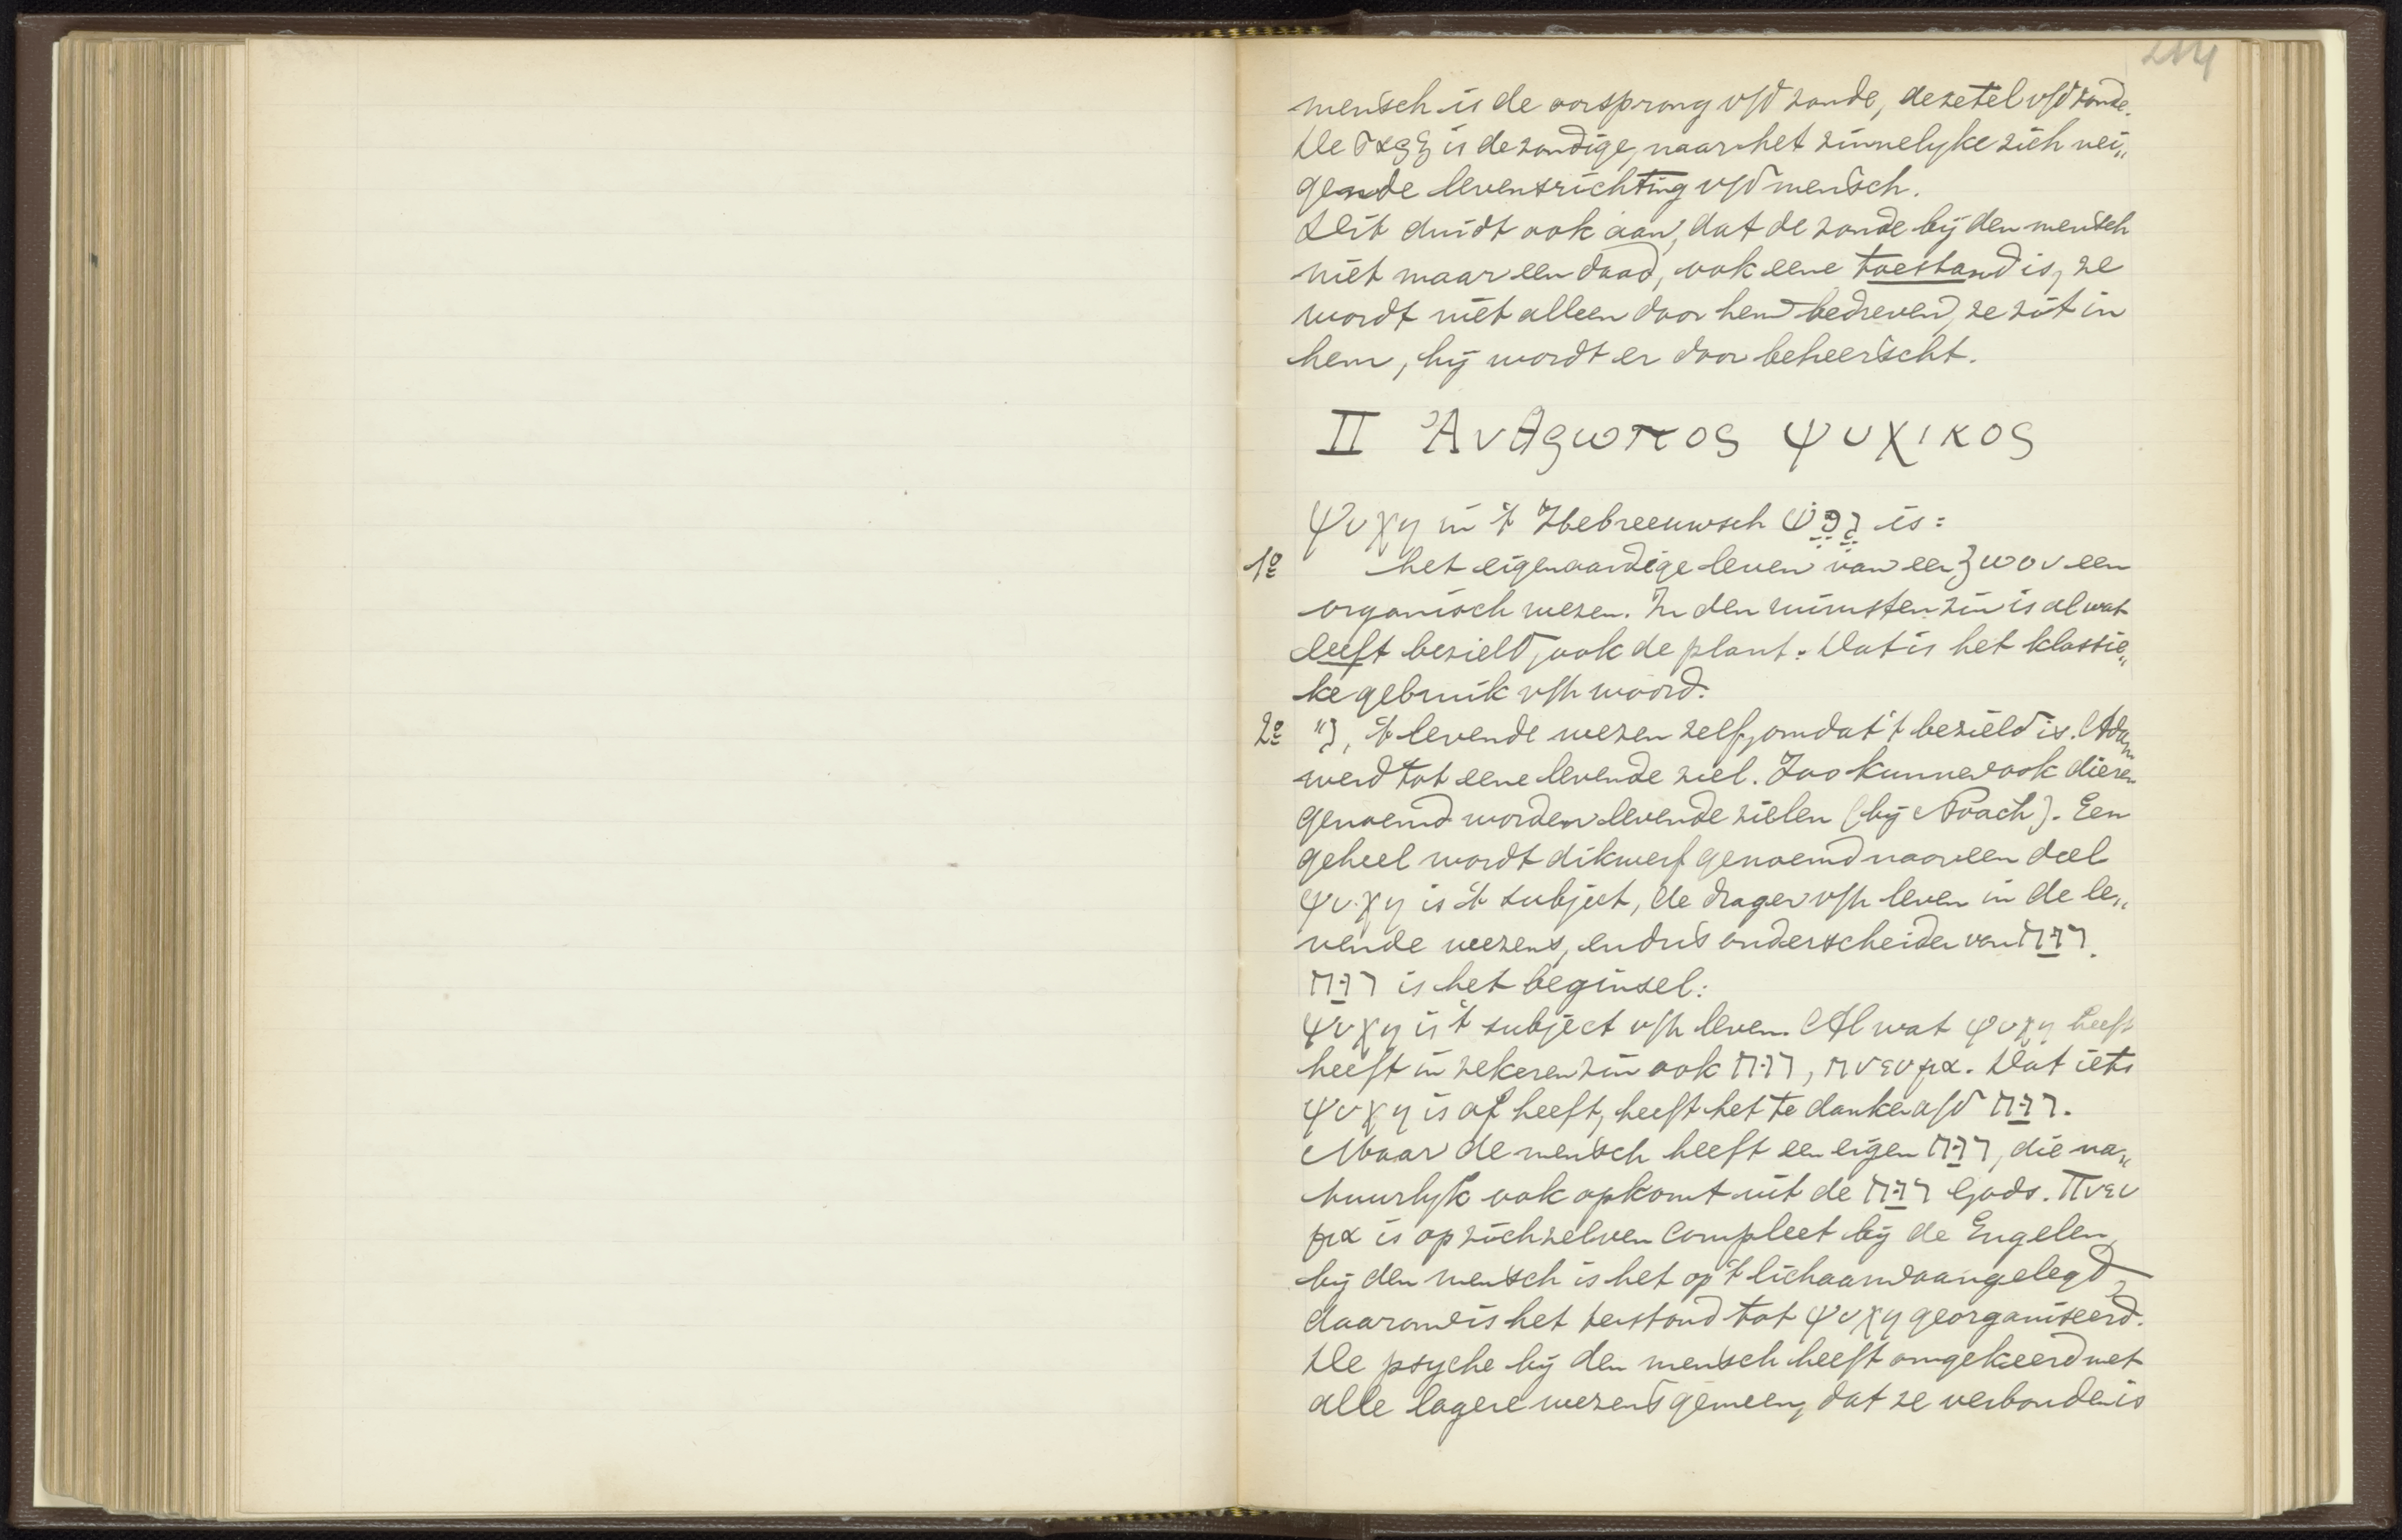 214
mensch is de oorsprong v/d zonde, de zetel v/d zonde.
De σαρξ is de zondige, naar het zinnelyke zich nei„
gende levensrichting v/d mensch.
Dit duidt ook aan, dat de zonde bij den mensch
niet maar een daad, ook eene toestand is, ze
wordt niet alleen door hem bedreven, ze zit in
hem, hij wordt er door beheerscht.
II Ἀνθρωπος ψυχικος
Ψυχη in 't Hebreeuwsch נֶפֶשׁ is:
1º het eigenaardige leven van een ζωον een
organisch wezen. In den ruimsten zin is al wat
leeft bezield, ook de plant. Dat is het klassie„
ke gebruik v/h woord.
2º "), 't levende wezen zelf, omdat 't bezield is. Adam
werd tot eene levende ziel. Zoo kunnen ook dieren
genoemd worden levende zielen (bij Noach). Een
geheel wordt dikwerf genoemd naar een deel
ψυχη is 't subject, de drager v/h leven in de le„
vende wezens, en dus onderscheiden van רוּחַ.
רוּחַ is het beginsel:
ψυχη is 't subject v/h leven. Al wat ψυχη heeft
heeft in zekeren zin ook רוּח, πνευμα. Dat iets
ψυχη is of heeft, heeft het te danken a/d רוּחַ.
Maar de mensch heeft een eigen רוּחַ, die na„
tuurlyk ook opkomt uit de רוּחַ Gods. Πνευ
μα is op zichzelven compleet bij de Engelen,
bij den mensch is het op 't lichaam aangelegd,
daarom is het terstond tot ψυχη georganiseerd.
De psyche bij den mensch heeft omgekeerd met
alle lagere wezens gemeen, dat ze verbonden is